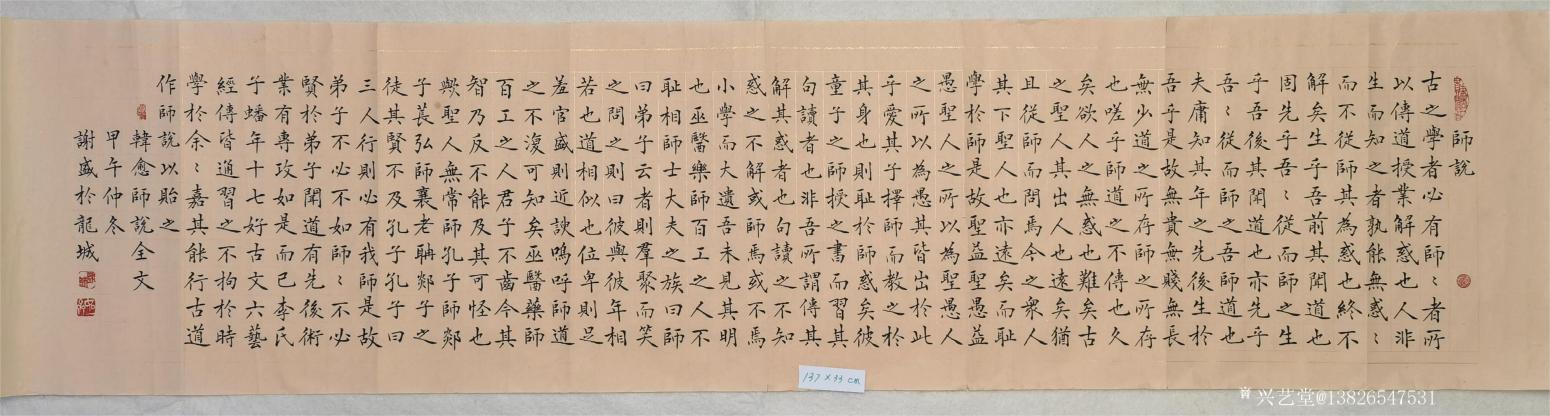 師說
古之學者必有師〻者所
以傳道授業解惑也人非
生而知之者孰能無惑〻
而不從師其為惑也終不
解矣生乎吾前其聞道也
固先乎吾〻從而師之生
乎吾後其聞道也亦先乎
吾〻從而師之吾師道也
夫庸知其年之先後生於
吾乎是故無貴無賤無長
無少道之所存師之所存
也嗟乎師道之不傳也久
矣欲人之無惑也難矣古
之聖人其出人也遠矣猶
且從師而問焉今之衆人
其下聖人也亦遠矣而耻
學於師是故聖益聖愚益
愚聖人之所以為聖愚人
之所以為愚其皆出於此
乎愛其子擇師而教之於
其身也則耻於師惑矣彼
童子之師授之書而習其
句讀者也非吾所謂傳其
解其惑者也句讀之不知
惑之不解或師焉或不焉
小學而大遺吾未見其明
也巫醫樂師百工之人不
耻相師士大夫之族曰師
曰弟子云者則羣聚而笑
之問之則曰彼與彼年相
若也道相似也位卑則足
羞官盛則近諛嗚呼師道
之不復可知矣巫醫藥師
百工之人君子不齒今其
智乃反不能及其可怪也
歟聖人無常師孔子師郯
子萇弘師襄老聃郯子之
徒其賢不及孔子孔子曰
三人行則必有我師是故
弟子不必不如師〻不必
賢於弟子聞道有先後術
業有專攻如是而已李氏
子蟠年十七好古文六藝
經傳皆通習之不拘於時
學於余〻嘉其能行古道
作師說以貽之
韓愈師說全文
甲午仲冬
謝盛於龍城
137×33 cm
兴艺堂@13826547531